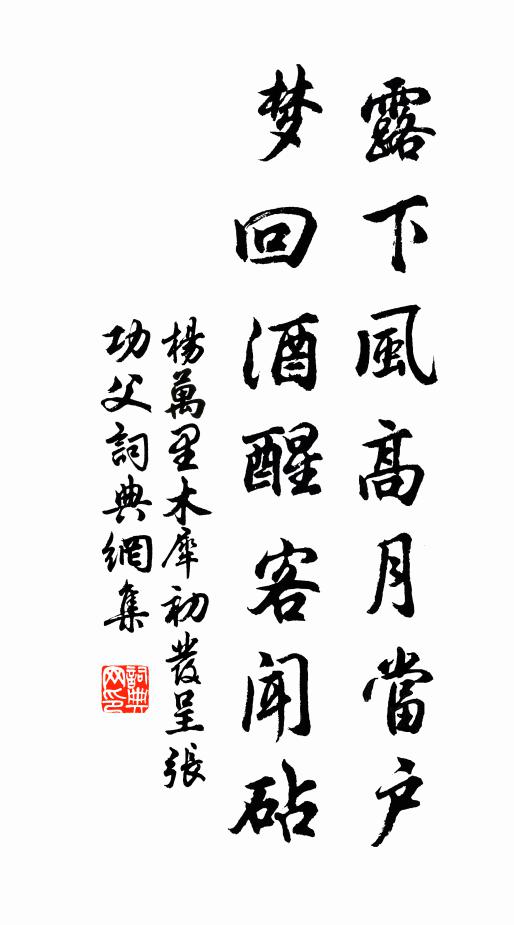 露下風高月當户
梦回酒醒客闻砧
楊萬里木犀初發呈張
功父詞典網集
詞典
网印